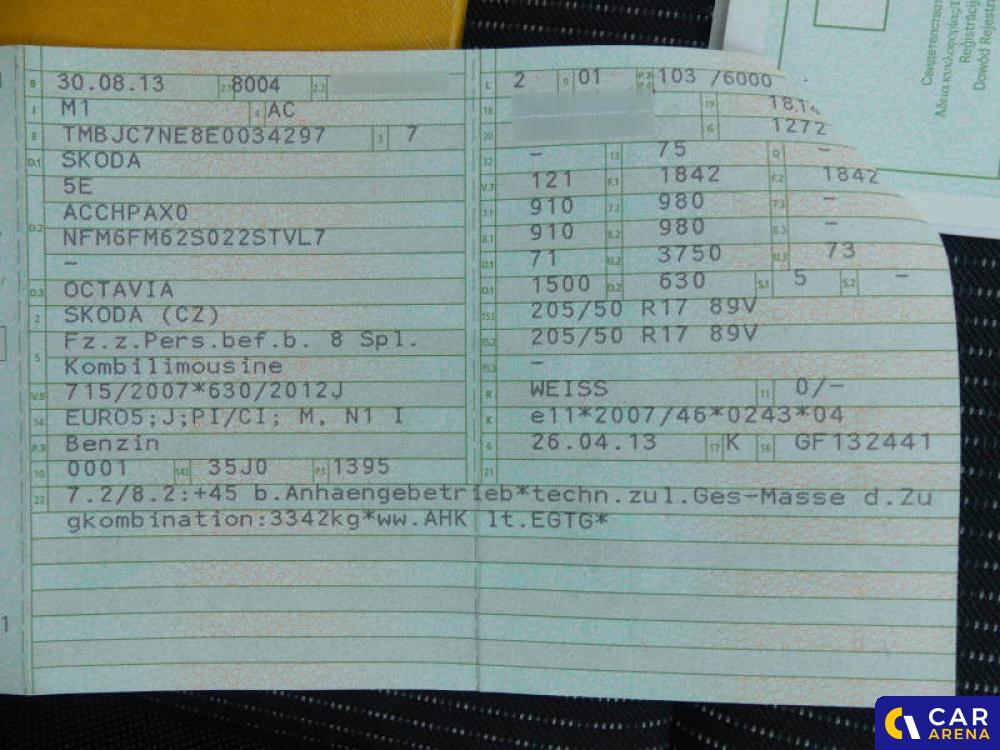 B 30.08.13 2.1 8004 2.2
J M1 4 AC
E TMBJC7NE8E0034297 3 7
D.1 SKODA
5E
D.2 ACCHPAX0
NFM6FM62S022STVL7
–
D.3 OCTAVIA
2 SKODA (CZ)
5 Fz.z.Pers.bef.b. 8 Spl.
Kombilimousine
V.9 715/2007*630/2012J
14 EURO5;J;PI/CI; M, N1 I
P.3 Benzin
10 0001 14.1 35J0 P.1 1395
L 2 9 01 P.2 P.4 103 /6000
18 19 1814
20 G 1272
12 – 13 75 Q –
V.7 121 F.1 1842 F.2 1842
7.1 910 7.2 980 7.3 –
8.1 910 8.2 980 8.3 –
U.1 71 U.2 3750 U.3 73
O.1 1500 O.2 630 S.1 5 S.2 –
15.1 205/50 R17 89V
15.2 205/50 R17 89V
15.3 –
R WEISS 11 0/–
K e11*2007/46*0243*04
6 26.04.13 17 K 16 GF132441
21
22 7.2/8.2:+45 b.Anhaengebetrieb*techn.zul.Ges-Masse d.Zu
gkombination:3342kg*ww.AHK lt.EGTG*
1
CAR
ARENA